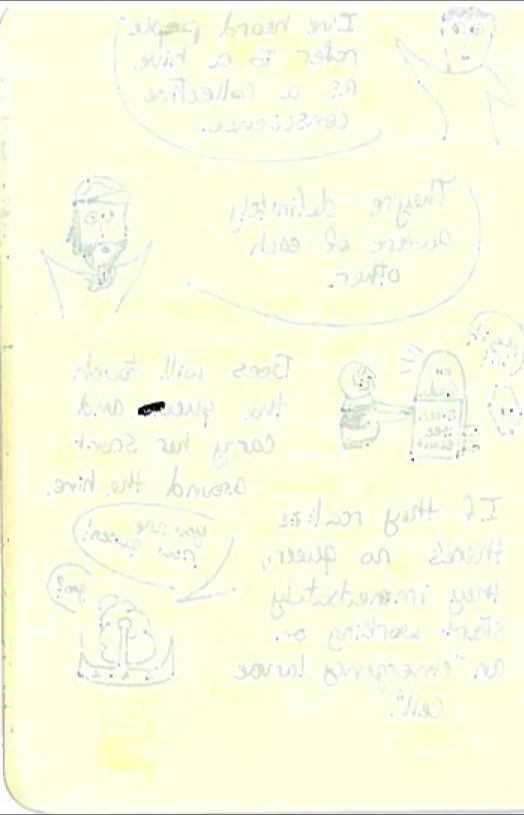 I've heard people
refer to a hive
as a collective
conscience.
They're definitely
aware of each
other.
Bees will touch
the queen and
carry her scent
around the hive.
If they realize
there's no queen,
they immediately
start working on
an "emergency larvae
cell".
you are
now queen!